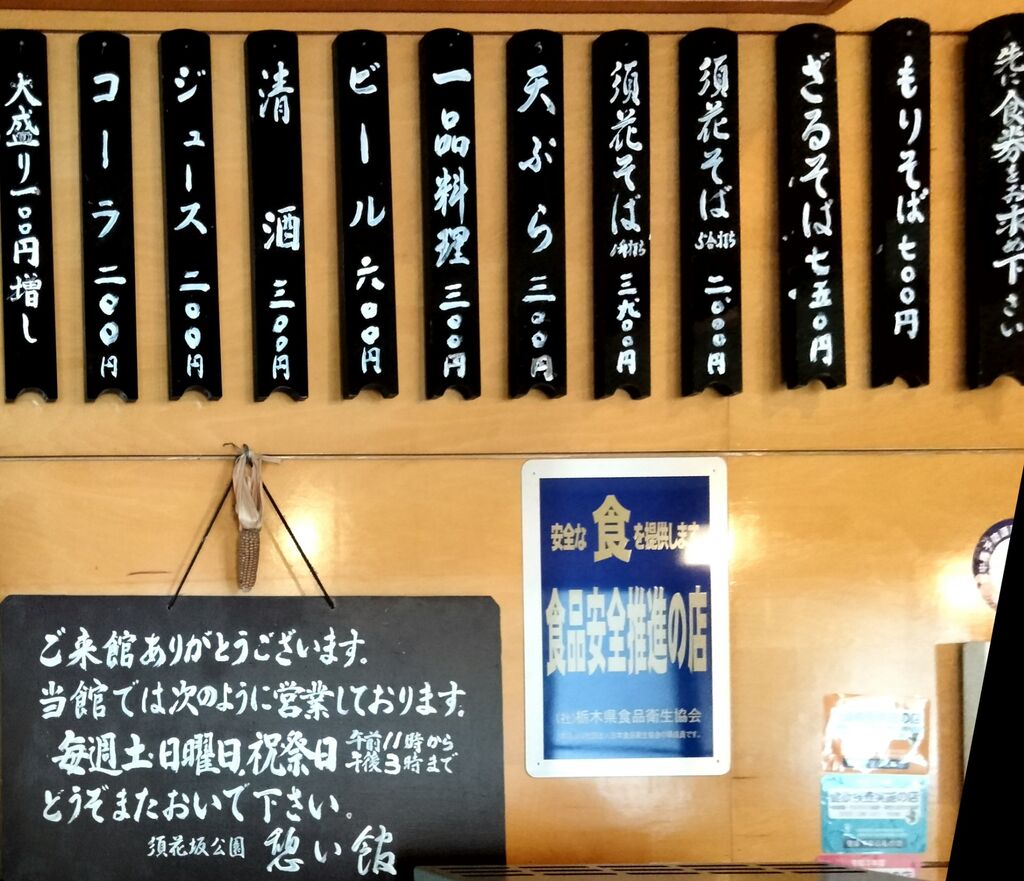 先に食券をお求め下さい
もりそば七〇〇円
ざるそば七五〇円
須花そば 5合打ち 二、〇〇〇円
須花そば 1升打ち 三、九〇〇円
天ぷら 三〇〇円
一品料理 三〇〇円
ビール 六〇〇円
清酒 三〇〇円
ジュース 二〇〇円
コーラ 二〇〇円
大盛り一〇〇円増し
ご来館ありがとうございます.
当館では次のように営業しております.
毎週土・日曜日、祝祭日 午前11時から 午後3時まで
どうぞまたおいで下さい。
須花坂公園 憩い館
安全な食を提供します
食品安全推進の店
(社)栃木県食品衛生協会